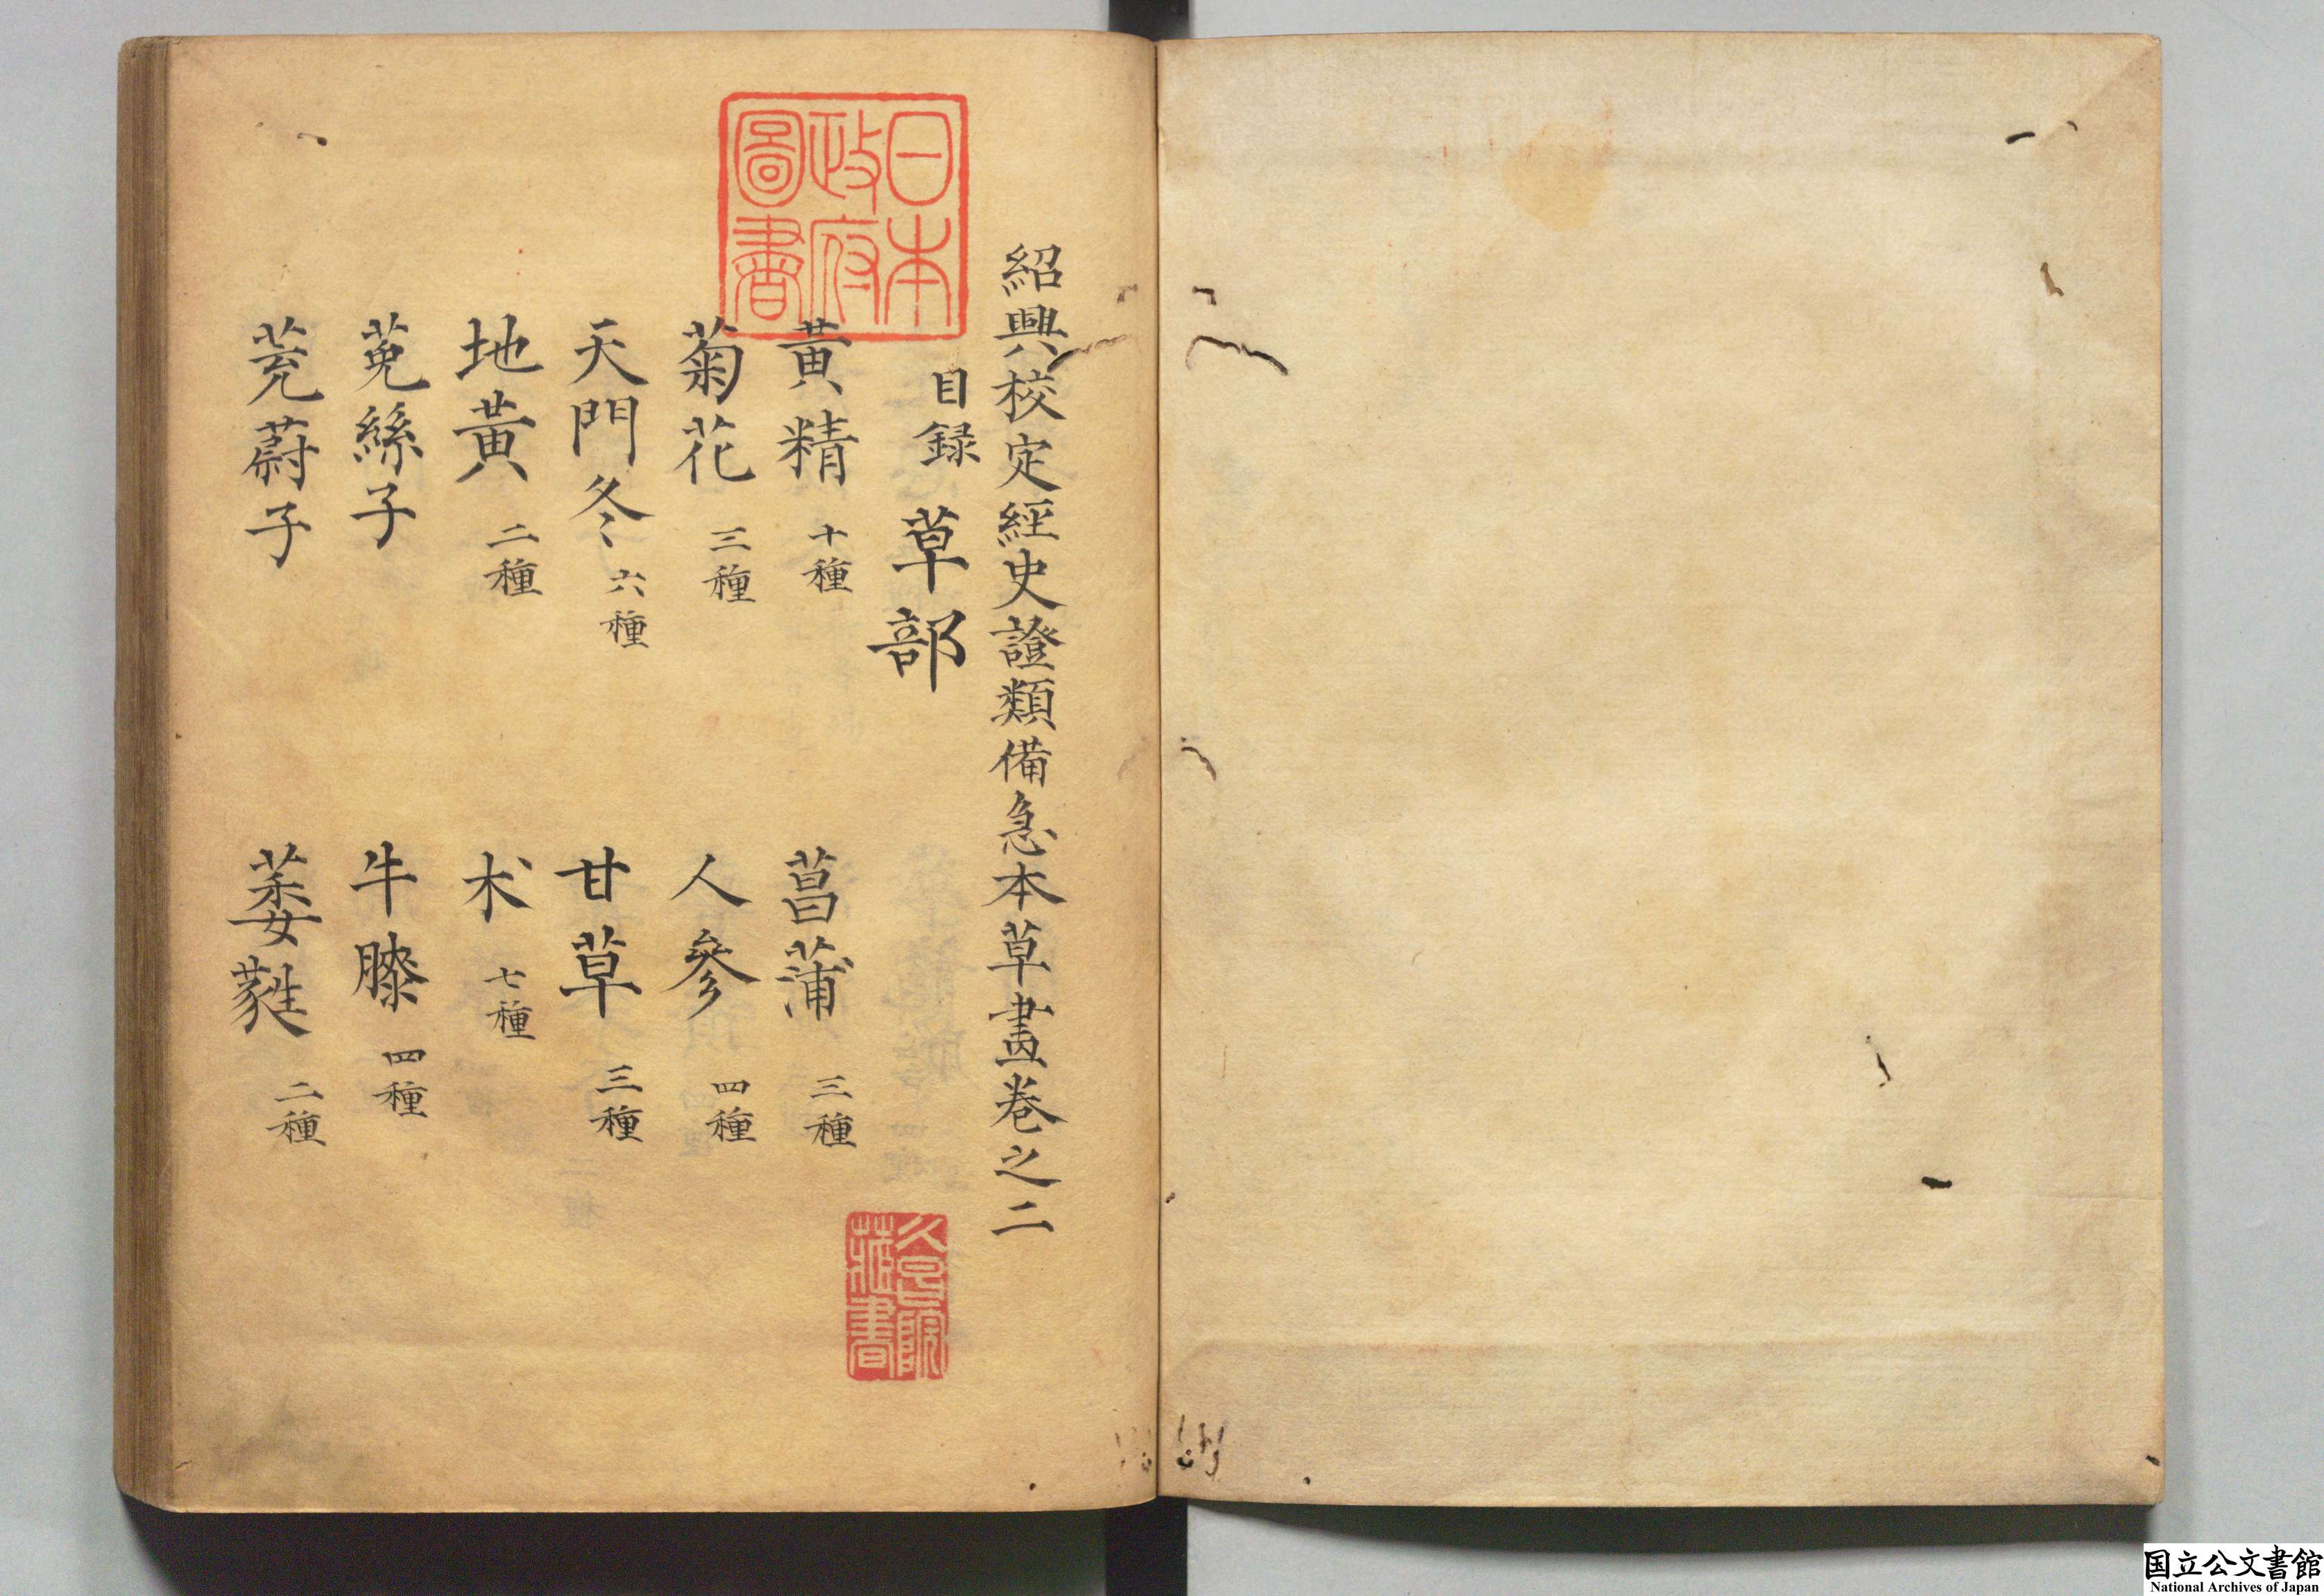 紹興校定經史證類備急本草畫卷之二
目録 草部
黃精 十種 菖蒲 三種
菊花 三種 人參 四種
天門冬 六種 甘草 三種
地黃 二種 朮 七種
菟絲子 牛膝 四種
茺蔚子 萎蕤 二種
日本
政府
圖書
藏書
国立公文書館
National Archives of Japan